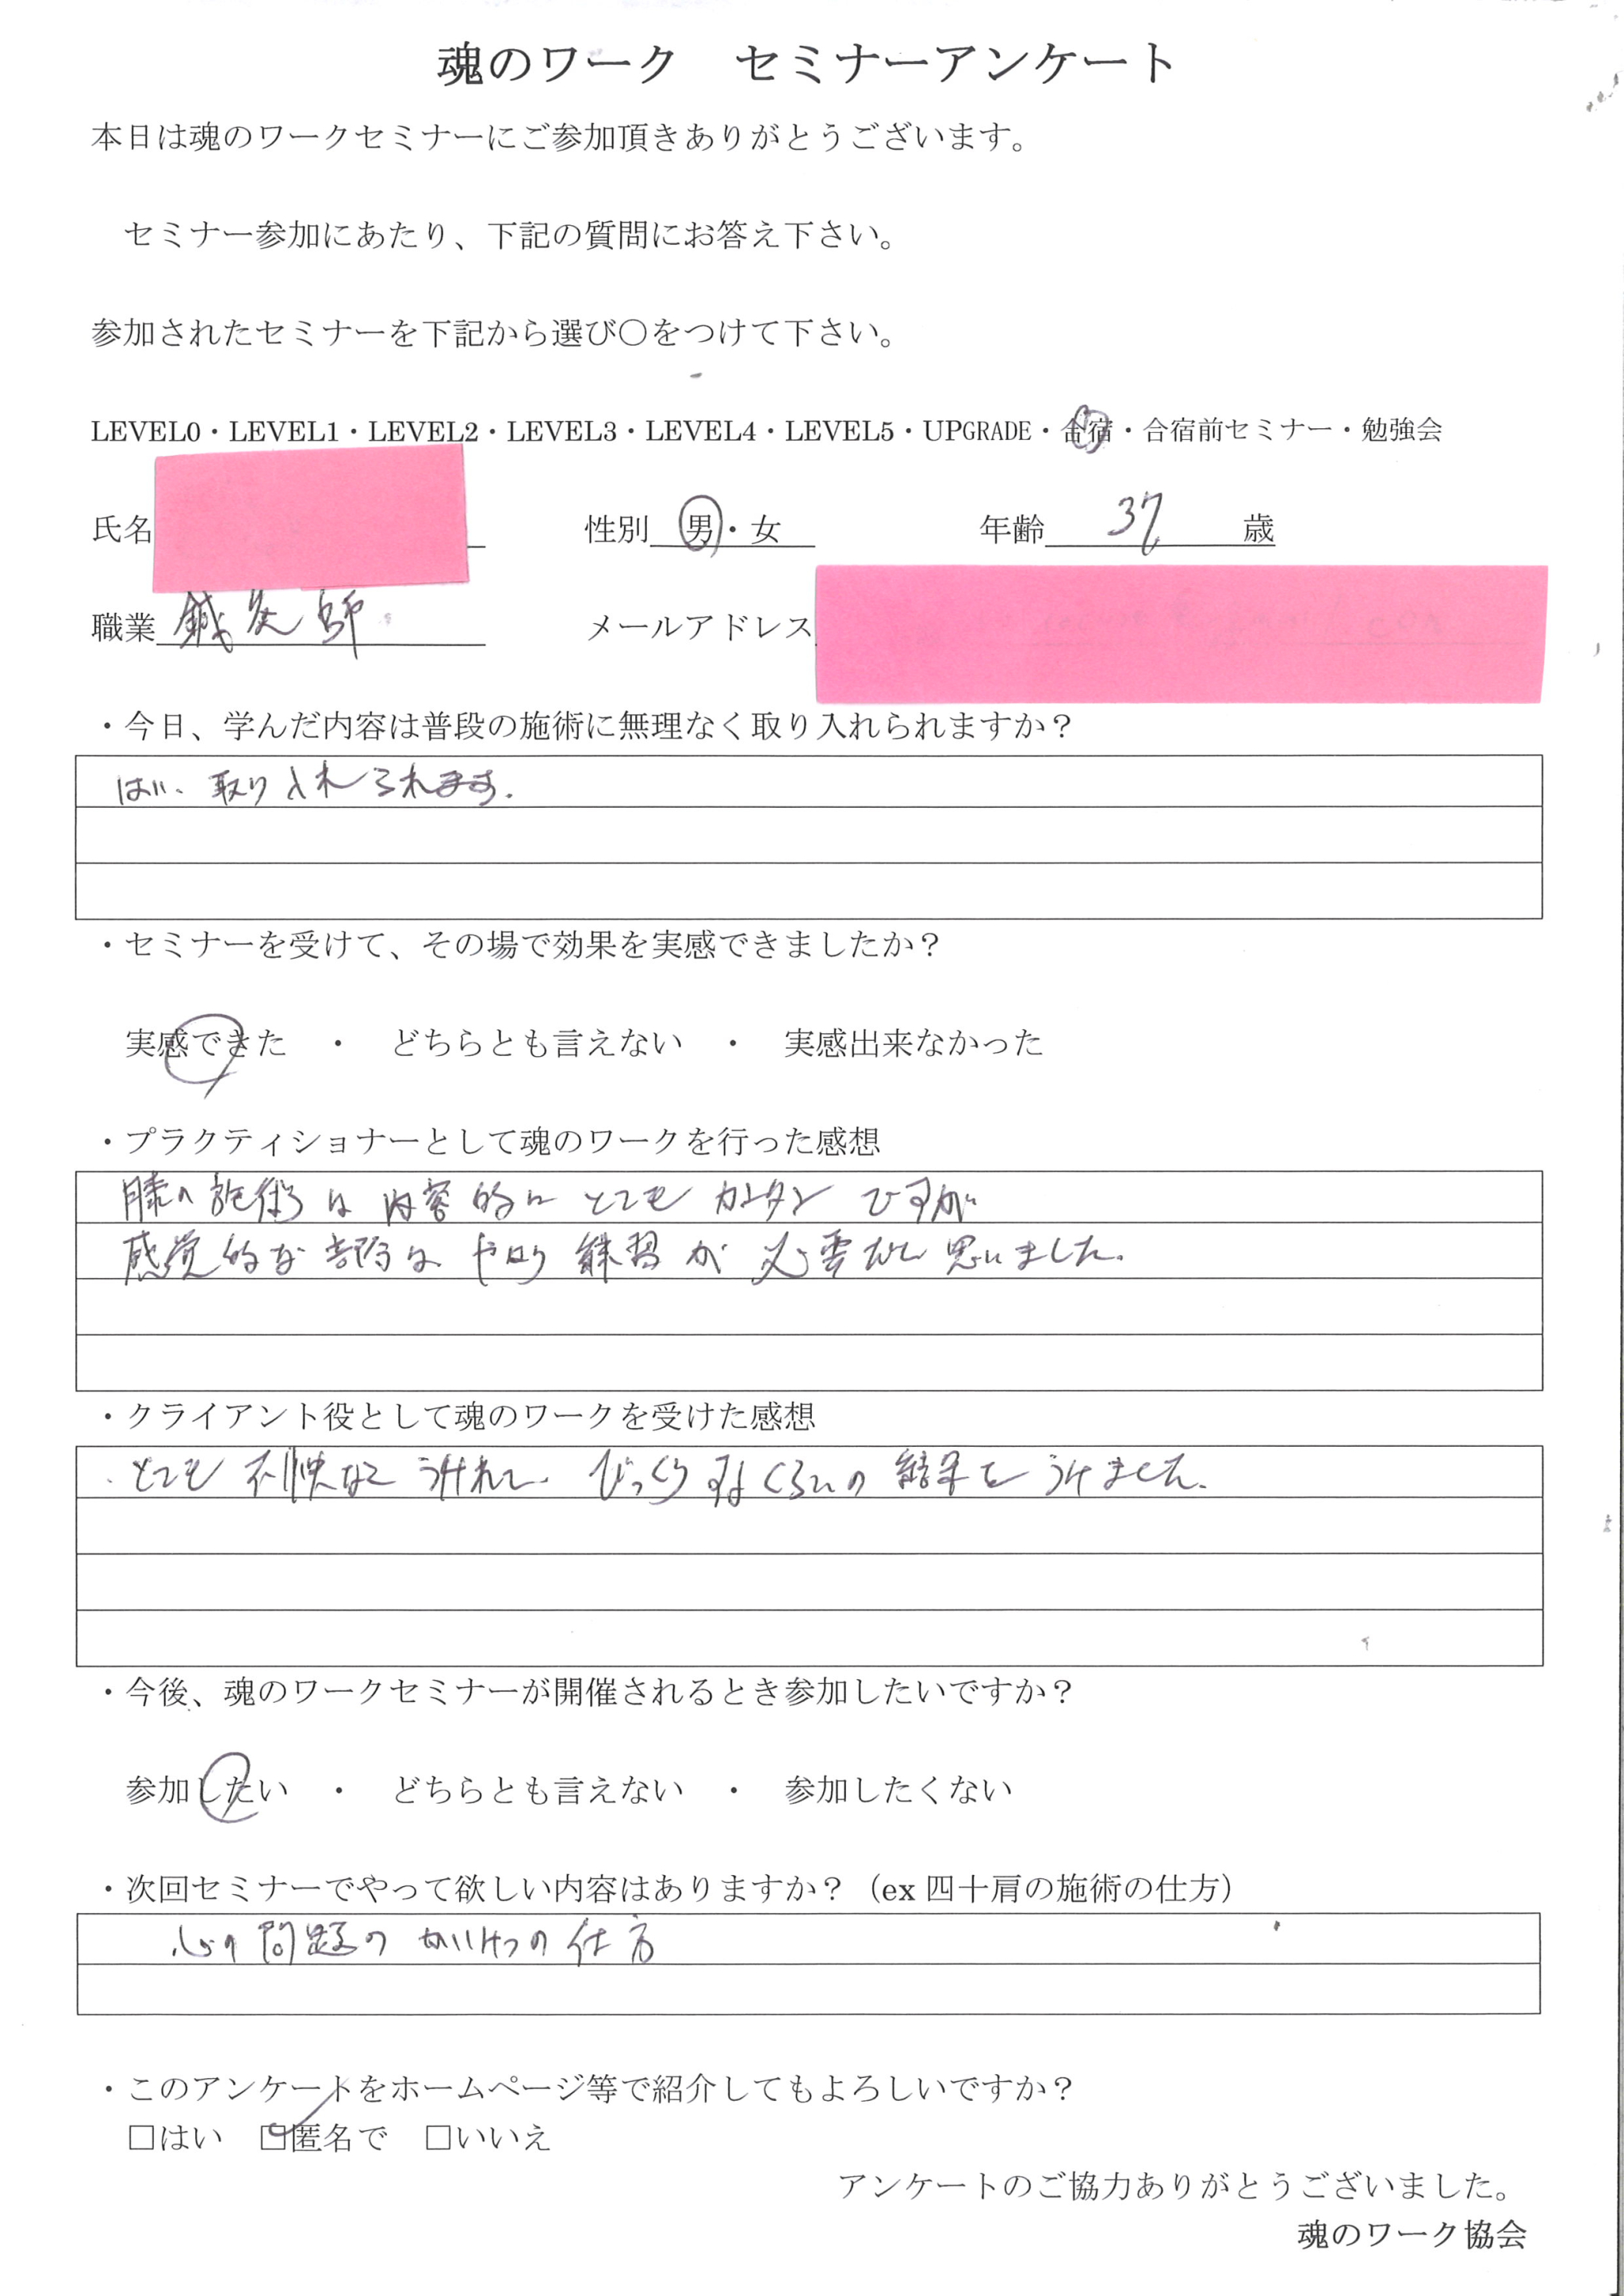 魂のワーク　セミナーアンケート
本日は魂のワークセミナーにご参加頂きありがとうございます。
セミナー参加にあたり、下記の質問にお答え下さい。
参加されたセミナーを下記から選び〇をつけて下さい。
LEVEL0・LEVEL1・LEVEL2・LEVEL3・LEVEL4・LEVEL5・UPGRADE・合宿・合宿前セミナー・勉強会
氏名　性別　男・女　年齢　37　歳
職業　鍼灸師　メールアドレス
・今日、学んだ内容は普段の施術に無理なく取り入れられますか？
はい、取り入れられます.
・セミナーを受けて、その場で効果を実感できましたか？
実感できた　・　どちらとも言えない　・　実感出来なかった
・プラクティショナーとして魂のワークを行った感想
膝の施術は内容的にとてもカンタンですが
感覚的な部分はやはり練習が必要だと思いました.
・クライアント役として魂のワークを受けた感想
とても不快なくうけれて、びっくりするくらいの結果をうけました.
・今後、魂のワークセミナーが開催されるとき参加したいですか？
参加したい　・　どちらとも言えない　・　参加したくない
・次回セミナーでやって欲しい内容はありますか？（ex 四十肩の施術の仕方）
心の問題のかいけつの仕方
・このアンケートをホームページ等で紹介してもよろしいですか？
□はい　□匿名で　□いいえ
アンケートのご協力ありがとうございました。
魂のワーク協会